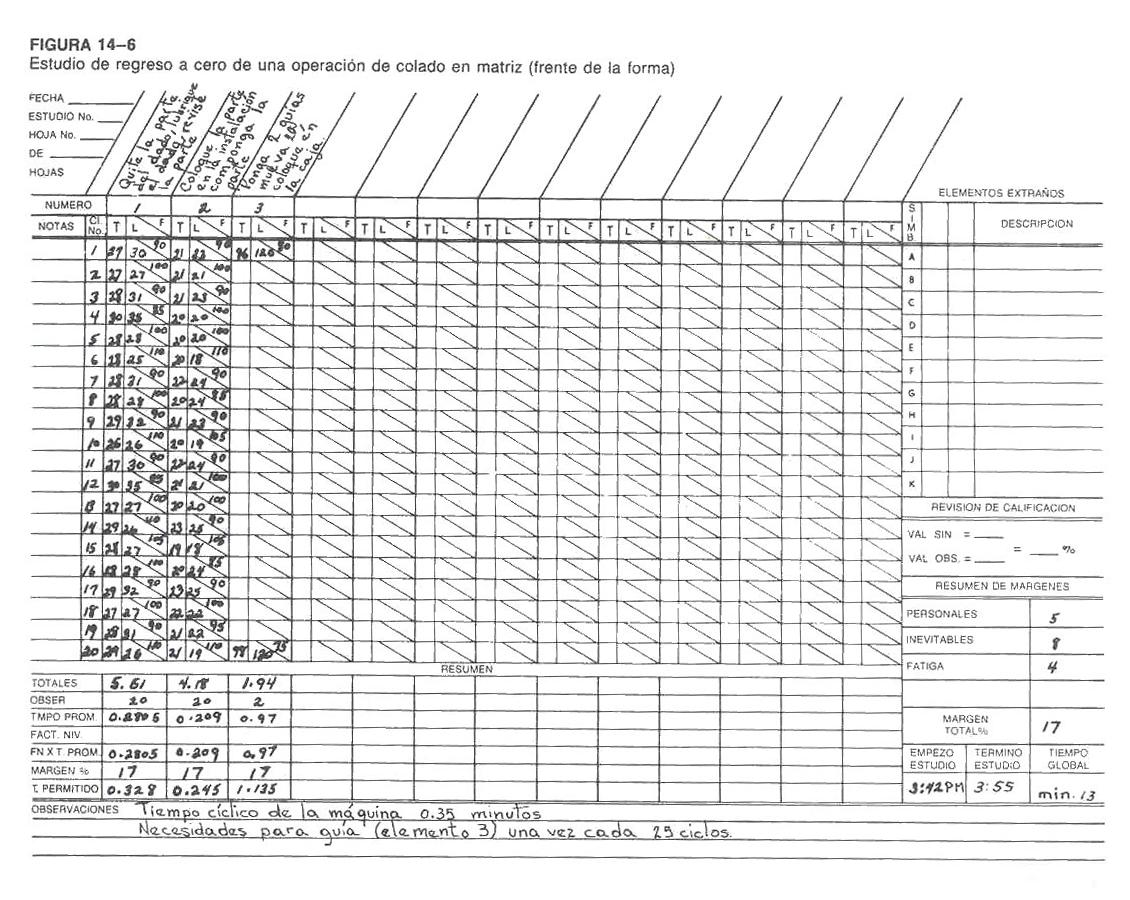 FIGURA 14–6
Estudio de regreso a cero de una operación de colado en matriz (frente de la forma)
FECHA
ESTUDIO No.
HOJA No.
DE
HOJAS
Quite la parte del dado, lubrique el dado, revise la parte
Coloque la parte en la instalación componga la parte
Ponga 2 guías mueva la, coloque en la caja.
NUMERO 1 2 3
ELEMENTOS EXTRAÑOS
NOTAS Cl. No. T L F T L F T L F T L F T L F T L F T L F T L F T L F T L F T L F T L F T L F SIMB DESCRIPCION
1 27 30 90 21 23 90 96 120 80 A
2 27 27 100 21 21 100 B
3 28 31 90 21 23 90 C
4 30 35 85 20 20 100 D
5 28 28 100 20 20 100 E
6 28 25 110 20 18 110 F
7 28 31 90 22 24 90
8 28 28 100 20 24 85 G
9 29 32 90 21 23 90 H
10 26 26 110 20 19 105 I
11 27 30 90 22 24 90 J
12 30 35 85 21 21 100 K
13 27 27 100 20 20 100
REVISION DE CALIFICACION
14 29 26 110 23 25 90
VAL SIN =
15 28 27 105 19 18 105
= %
VAL OBS. =
16 28 28 100 20 24 85
RESUMEN DE MARGENES
17 29 32 90 23 25 90
18 27 27 100 22 22 100
PERSONALES 5
19 28 31 90 21 22 95
INEVITABLES 8
20 29 26 110 21 19 110 98 130 75
FATIGA 4
RESUMEN
TOTALES 5.61 4.18 1.94
OBSER 20 20 2
TMPO PROM. 0.2805 0.209 0.97
MARGEN TOTAL% 17
FACT. NIV.
FN X T. PROM. 0.2805 0.209 0.97
MARGEN % 17 17 17
T. PERMITIDO 0.328 0.245 1.135
EMPEZO ESTUDIO TERMINO ESTUDIO TIEMPO GLOBAL
3:42PM 3:55 min. 13
OBSERVACIONES Tiempo cíclico de la máquina 0.35 minutos
Necesidades para guía (elemento 3) una vez cada 25 ciclos.